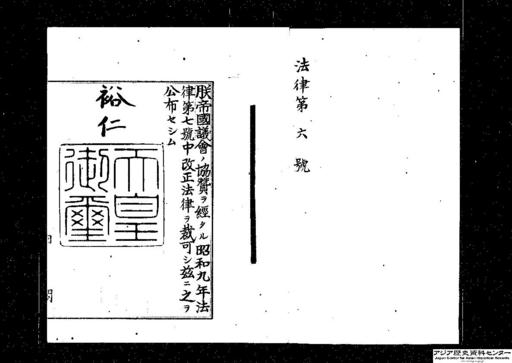 法律第六號
朕帝國議會ノ協贊ヲ經タル昭和九年法
律第七號中改正法律ヲ裁可シ茲ニ之ヲ
公布セシム
裕仁
天皇
御璽
内閣
アジア歴史資料センター
Japan Center for Asian Historical Records